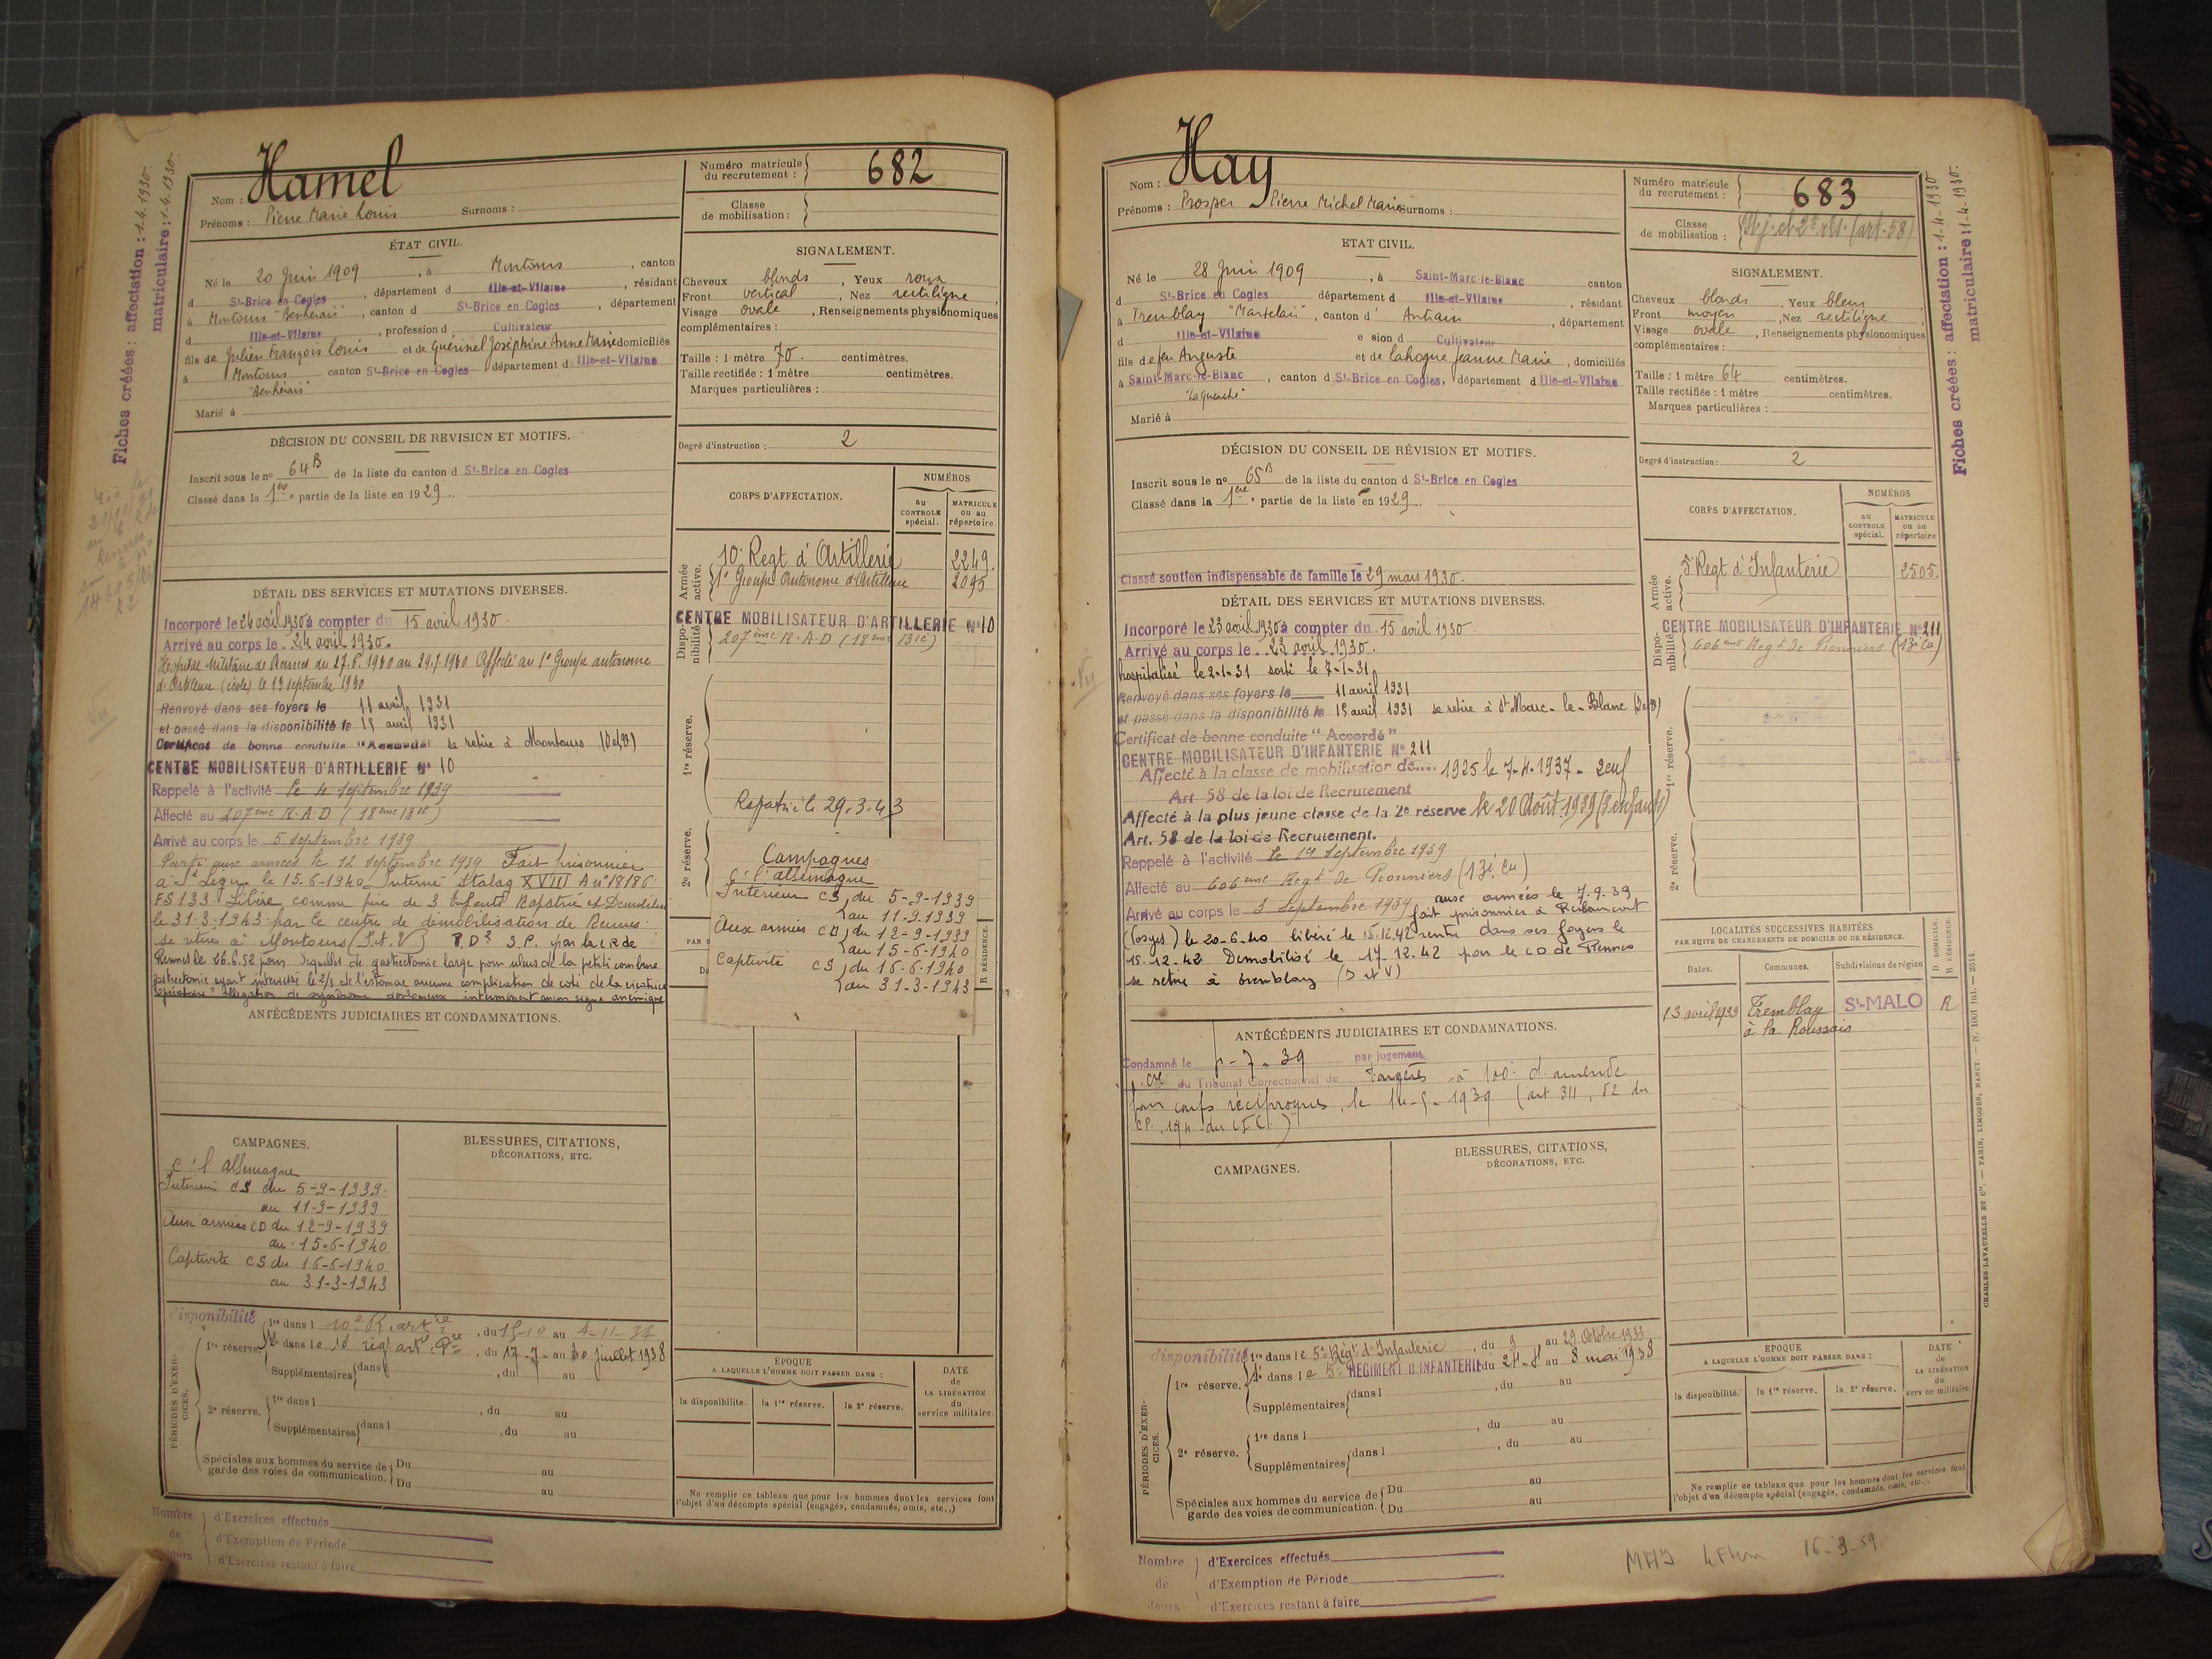 Fiches créées : affectation : 1.4.1930.
matriculaire : 1.4.1930.
Nom : Hamel
Prénoms : Pierre Marie Louis Surnoms :
Numéro matricule du recrutement : 682
Classe de mobilisation :
ÉTAT CIVIL.
Né le 20 Juin 1909, à Montours, canton
d St-Brice en Cogles, département d Ille-et-Vilaine, résidant
à Montours "Benhérais", canton d St-Brice en Cogles, département
d Ille-et-Vilaine, profession d Cultivateur
fils de Julien François Louis et de Guérinel Joséphine Anne Marie domiciliés
à Montours canton St-Brice en Cogles département d Ille-et-Vilaine
"Benhérais"
Marié à
SIGNALEMENT.
Cheveux blonds, Yeux roux
Front vertical, Nez rectiligne,
Visage ovale, Renseignements physionomiques
complémentaires :
Taille : 1 mètre 70. centimètres.
Taille rectifiée : 1 mètre centimètres.
Marques particulières :
Degré d'instruction : 2
DÉCISION DU CONSEIL DE REVISION ET MOTIFS.
Inscrit sous le no 64B de la liste du canton d St-Brice en Cogles
Classé dans la 1ère partie de la liste en 1929.
CORPS D'AFFECTATION.
NUMÉROS
au CONTROLE spécial.
MATRICULE ou au répertoire.
Armée active.
10e Regt d'Artillerie 2249.
1er Groupe Autonome d'Artillerie 2095
Disponibilité
CENTRE MOBILISATEUR D'ARTILLERIE No 10
207ème R.A.D (18ème Bie)
1re réserve.
Rapatrié le 29.3.43
2e réserve.
Campagnes
c/ l'allemagne
Intérieur CS du 5-9-1939
au 11-9-1939
Aux armées CD du 12-9-1939
au 15-6-1940
Captivité CS du 16-6-1940
au 31-3-1943
R RÉSIDENCE.
DÉTAIL DES SERVICES ET MUTATIONS DIVERSES.
Incorporé le 24 avril 1930 à compter du 15 avril 1930.
Arrivé au corps le 24 avril 1930.
Hopital Militaire de Rennes du 27.6.1930 au 29.7.1930 Affecté au 1er Groupe autonome
d'Artillerie (école) le 13 septembre 1930
Renvoyé dans ses foyers le 11 avril 1931
et passé dans la disponibilité le 15 avril 1931
Certificat de bonne conduite "Accordé" se retire à Montours (I et V)
CENTRE MOBILISATEUR D'ARTILLERIE No 10
Rappelé à l'activité le 4 septembre 1939
Affecté au 207ème R.A.D (18ème Bie)
Arrivé au corps le 5 septembre 1939
Parti aux armées le 12 septembre 1939 Fait prisonnier
à St Léger le 15.6-1940 Interné Stalag XVIII A n° 18186
FS133. Libéré comme père de 3 Enfants Rapatrié et Démobilisé
le 31.3.1943 par le centre de démobilisation de Rennes.
se retire à Montours (I. et V) P.D? S.P. par la C.R de
Rennes le 26.6.52 pour Séquelles de gastrectomie large pour ulcus de la petite courbure
gastrectomie ayant intéressé le 2/3 de l'estomac aucune complication de coté de la cicatrice
opératoire allégation de syndrome douloureux intermittent aucun signe anémique
ANTÉCÉDENTS JUDICIAIRES ET CONDAMNATIONS.
CAMPAGNES.
c/ l'allemagne
Intérieur CS du 5-9-1939.
au 11-9-1939
Aux armées CD du 12-9-1939
au 15-6-1940
Captivité CS du 16-6-1940
au 31-3-1943
BLESSURES, CITATIONS,
DÉCORATIONS, ETC.
PÉRIODES D'EXERCICES.
disponibilité 1re dans l 10e R. artie, du 15-10 au 4-11-34
1re réserve. 1e dans le 10 rég artie, du 17-7- au 30 juillet 1938
Supplémentaires dans l, du au
2e réserve. 1re dans l, du au
Supplémentaires dans l, du au
Spéciales aux hommes du service de garde des voies de communication. Du au
Du au
ÉPOQUE
A LAQUELLE L'HOMME DOIT PASSER DANS :
la disponibilité. la 1re réserve. la 2e réserve.
DATE de LA LIBÉRATION du service militaire.
Ne remplir ce tableau que pour les hommes dont les services font
l'objet d'un décompte spécial (engagés, condamnés, omis, etc.,)
Nombre de jours
d'Exercices effectués
d'Exemption de Période
d'Exercices restant à faire
Nom : Hay
Prénoms : Prosper Pierre Michel Marie Surnoms :
Numéro matricule du recrutement : 683
Classe de mobilisation : Pl. j. cl. 2e rés. (art. 58)
Fiches créées : affectation : 1-4-1930
matriculaire : 1-4-1930.
ETAT CIVIL.
Né le 28 Juin 1909, à Saint-Marc-le-Blanc canton
d St-Brice en Cogles département d Ille-et-Vilaine, résidant
à Tremblay "Martelais", canton d' Antrain, département
d Ille-et-Vilaine e sion d Cultivateur
fils de feu Auguste et de Lahogue Jeanne Marie, domiciliés
à Saint-Marc-le-Blanc, canton d St-Brice en Cogles, département d Ille-et-Vilaine
Marié à
SIGNALEMENT.
Cheveux blonds, Yeux bleus
Front moyen, Nez rectiligne
Visage ovale, Renseignements physionomiques
complémentaires :
Taille : 1 mètre 64. centimètres.
Taille rectifiée : 1 mètre centimètres.
Marques particulières :
Degré d'instruction : 2
DÉCISION DU CONSEIL DE RÉVISION ET MOTIFS.
Inscrit sous le no 65B de la liste du canton d St-Brice en Cogles
Classé dans la 1ère partie de la liste en 1929.
Classé soutien indispensable de famille le 29 mars 1930.
CORPS D'AFFECTATION.
NUMÉROS
au CONTROLE spécial.
MATRICULE ou au répertoire
Armée active.
5e Regt d'Infanterie 2505.
Disponibilité
CENTRE MOBILISATEUR D'INFANTERIE No 211
606ème Regt de Pionniers (13e Cie)
1re réserve.
2e réserve.
DÉTAIL DES SERVICES ET MUTATIONS DIVERSES.
Incorporé le 23 avril 1930 à compter du 15 avril 1930.
Arrivé au corps le 23 avril 1930.
hospitalisé le 2-1-31 sorti le 7-1-31
Renvoyé dans ses foyers le 11 avril 1931
et passé dans la disponibilité le 15 avril 1931 se retire à St Marc-le-Blanc (I et V)
Certificat de bonne conduite "Accordé"
CENTRE MOBILISATEUR D'INFANTERIE No 211
Affecté à la classe de mobilisation de.... 1925 le 7-4-1937 - 2 enf
Art 58 de la loi de Recrutement
Affecté à la plus jeune classe de la 2e réserve le 20 Août 1939 (3 enfants)
Art. 58 de la loi de Recrutement.
Rappelé à l'activité le septembre 1939
Affecté au 606ème Regt de Pionniers (13e Cie)
Arrivé au corps le 3 septembre 1939 aux armées le 7.9.39
fait prisonnier à
(Vosges) le 20-6-40 libéré le 15.12.42 rentré dans ses foyers le
15-12-42 Démobilisé le 17.12.42 par le CD de Rennes
se retire à tremblay (I et V)
LOCALITÉS SUCCESSIVES HABITÉES
PAR SUITE DE CHANGEMENTS DE DOMICILE OU DE RÉSIDENCE.
Dates. Communes. Subdivisions de région D DOMICILE. R RÉSIDENCE.
13 avril 1939 Tremblay St-MALO R
à la Roussais
ANTÉCÉDENTS JUDICIAIRES ET CONDAMNATIONS.
Condamné le -7-39 par jugement
du Tribunal Correctionnel de Fougères à 100f d'amende
pour coups réciproques, le 14-5-1939 (art 311, 52 du
CP, 194 du CIC)
CAMPAGNES.
BLESSURES, CITATIONS,
DÉCORATIONS, ETC.
PÉRIODES D'EXERCICES.
disponibilité 1re dans le 5e Régt d'Infanterie, du 9 au 29 Octobre 1933
1re réserve. 1e dans le 5e RÉGIMENT D'INFANTERIE du au 8 mai 1938
Supplémentaires dans l, du au
2e réserve. 1re dans l, du au
Supplémentaires dans l, du au
Spéciales aux hommes du service de garde des voies de communication. Du au
Du au
EPOQUE
A LAQUELLE L'HOMME DOIT PASSER DANS :
la disponibilité. la 1re réserve. la 2e réserve.
DATE de LA LIBÉRATION du service militaire
Ne remplir ce tableau que pour les hommes dont les services font
l'objet d'un décompte spécial (engagés, condamnés, omis, etc.).
CHARLES-LAVAUZELLE ET Cie. — PARIS, LIMOGES, NANCY
Nombre de Jours
d'Exercices effectués
d'Exemption de Période
d'Exercices restant à faire